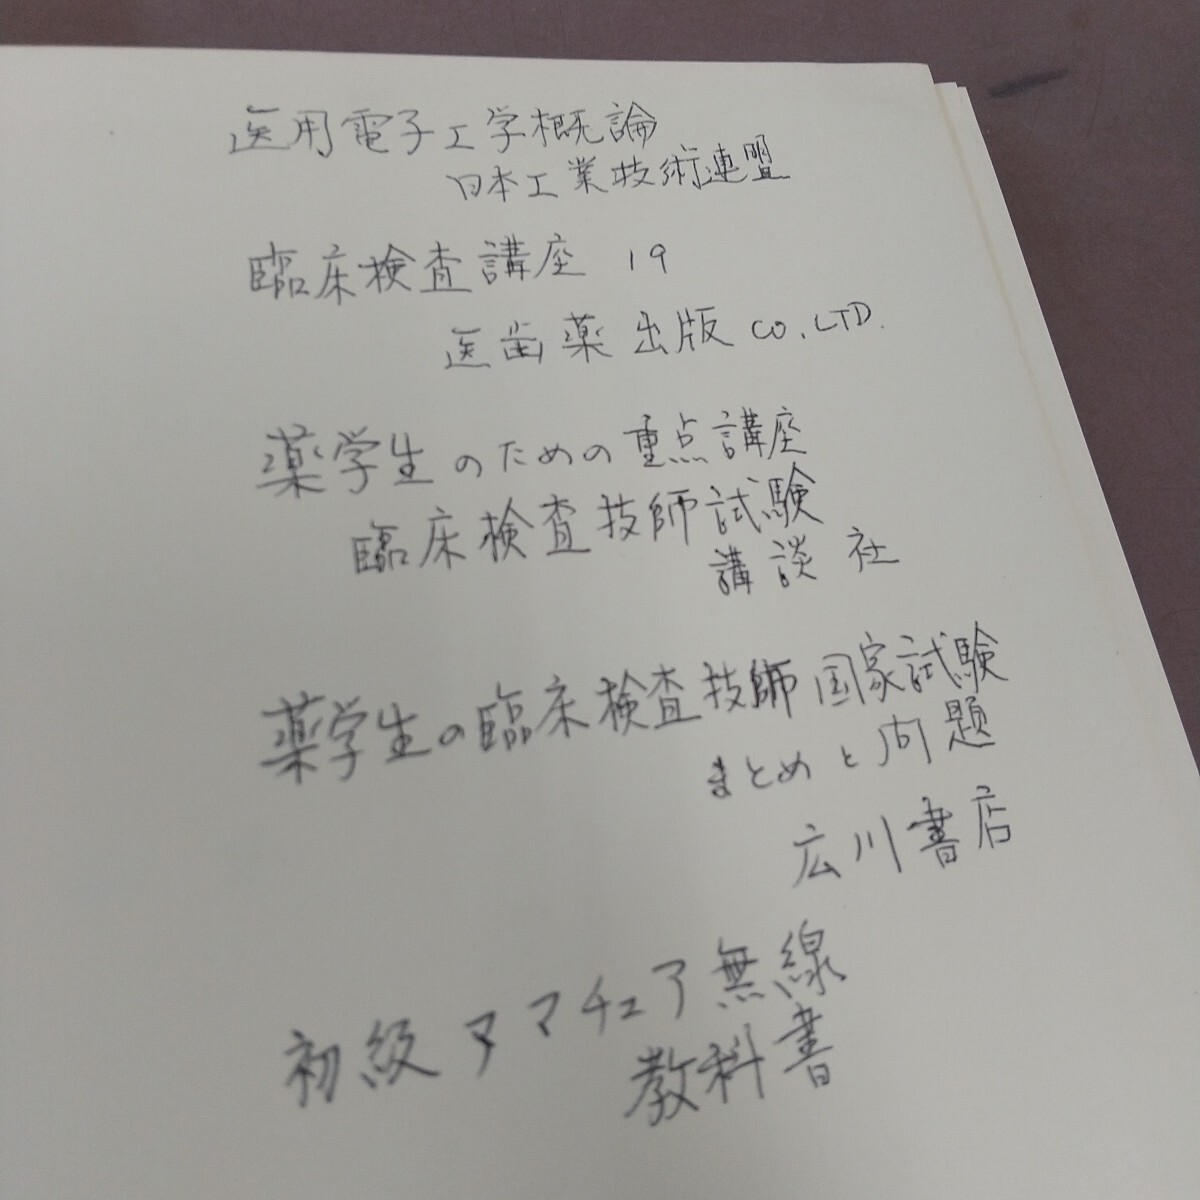 医用電子工学概論
日本工業技術連盟
臨床検査講座 19
医歯薬出版 CO.LTD.
薬学生のための重点講座
臨床検査技師試験
講談社
薬学生の臨床検査技師国家試験
まとめと問題
広川書店
初級アマチュア無線
教科書